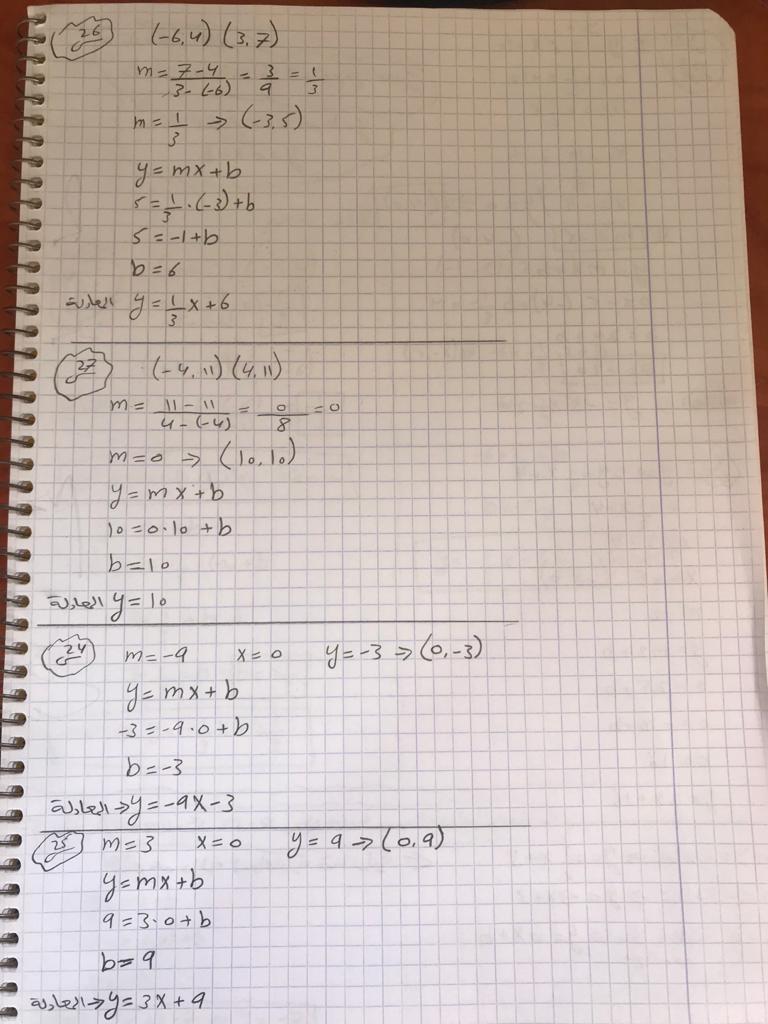 26 (-6,4) (3,7)
m = 7-4 / 3-(-6) = 3/9 = 1/3
m = 1/3 → (-3,5)
y = mx + b
5 = 1/3 · (-3) + b
5 = -1 + b
b = 6
المعادلة y = 1/3 x + 6
27 (-4,11) (4,11)
m = 11-11 / 4-(-4) = 0/8 = 0
m = 0 → (10,10)
y = mx + b
10 = 0·10 + b
b = 10
المعادلة y = 10
24 m = -9 x = 0 y = -3 → (0,-3)
y = mx + b
-3 = -9·0 + b
b = -3
المعادلة → y = -9x - 3
25 m = 3 x = 0 y = 9 → (0,9)
y = mx + b
9 = 3·0 + b
b = 9
المعادلة → y = 3x + 9